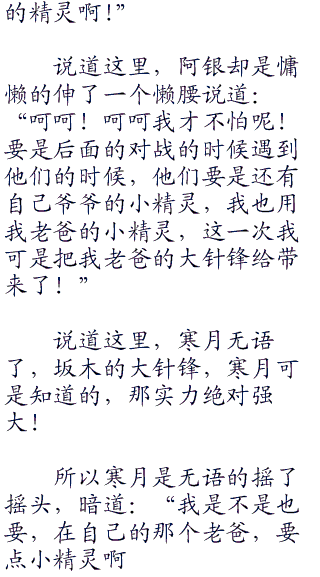 的精灵啊！”
说道这里，阿银却是慵
懒的伸了一个懒腰说道：
“呵呵！呵呵我才不怕呢！
要是后面的对战的时候遇到
他们的时候，他们要是还有
自己爷爷的小精灵，我也用
我老爸的小精灵，这一次我
可是把我老爸的大针锋给带
来了！”
说道这里，寒月无语
了，坂木的大针锋，寒月可
是知道的，那实力绝对强
大！
所以寒月是无语的摇了
摇头，暗道：“我是不是也
要，在自己的那个老爸，要
点小精灵啊